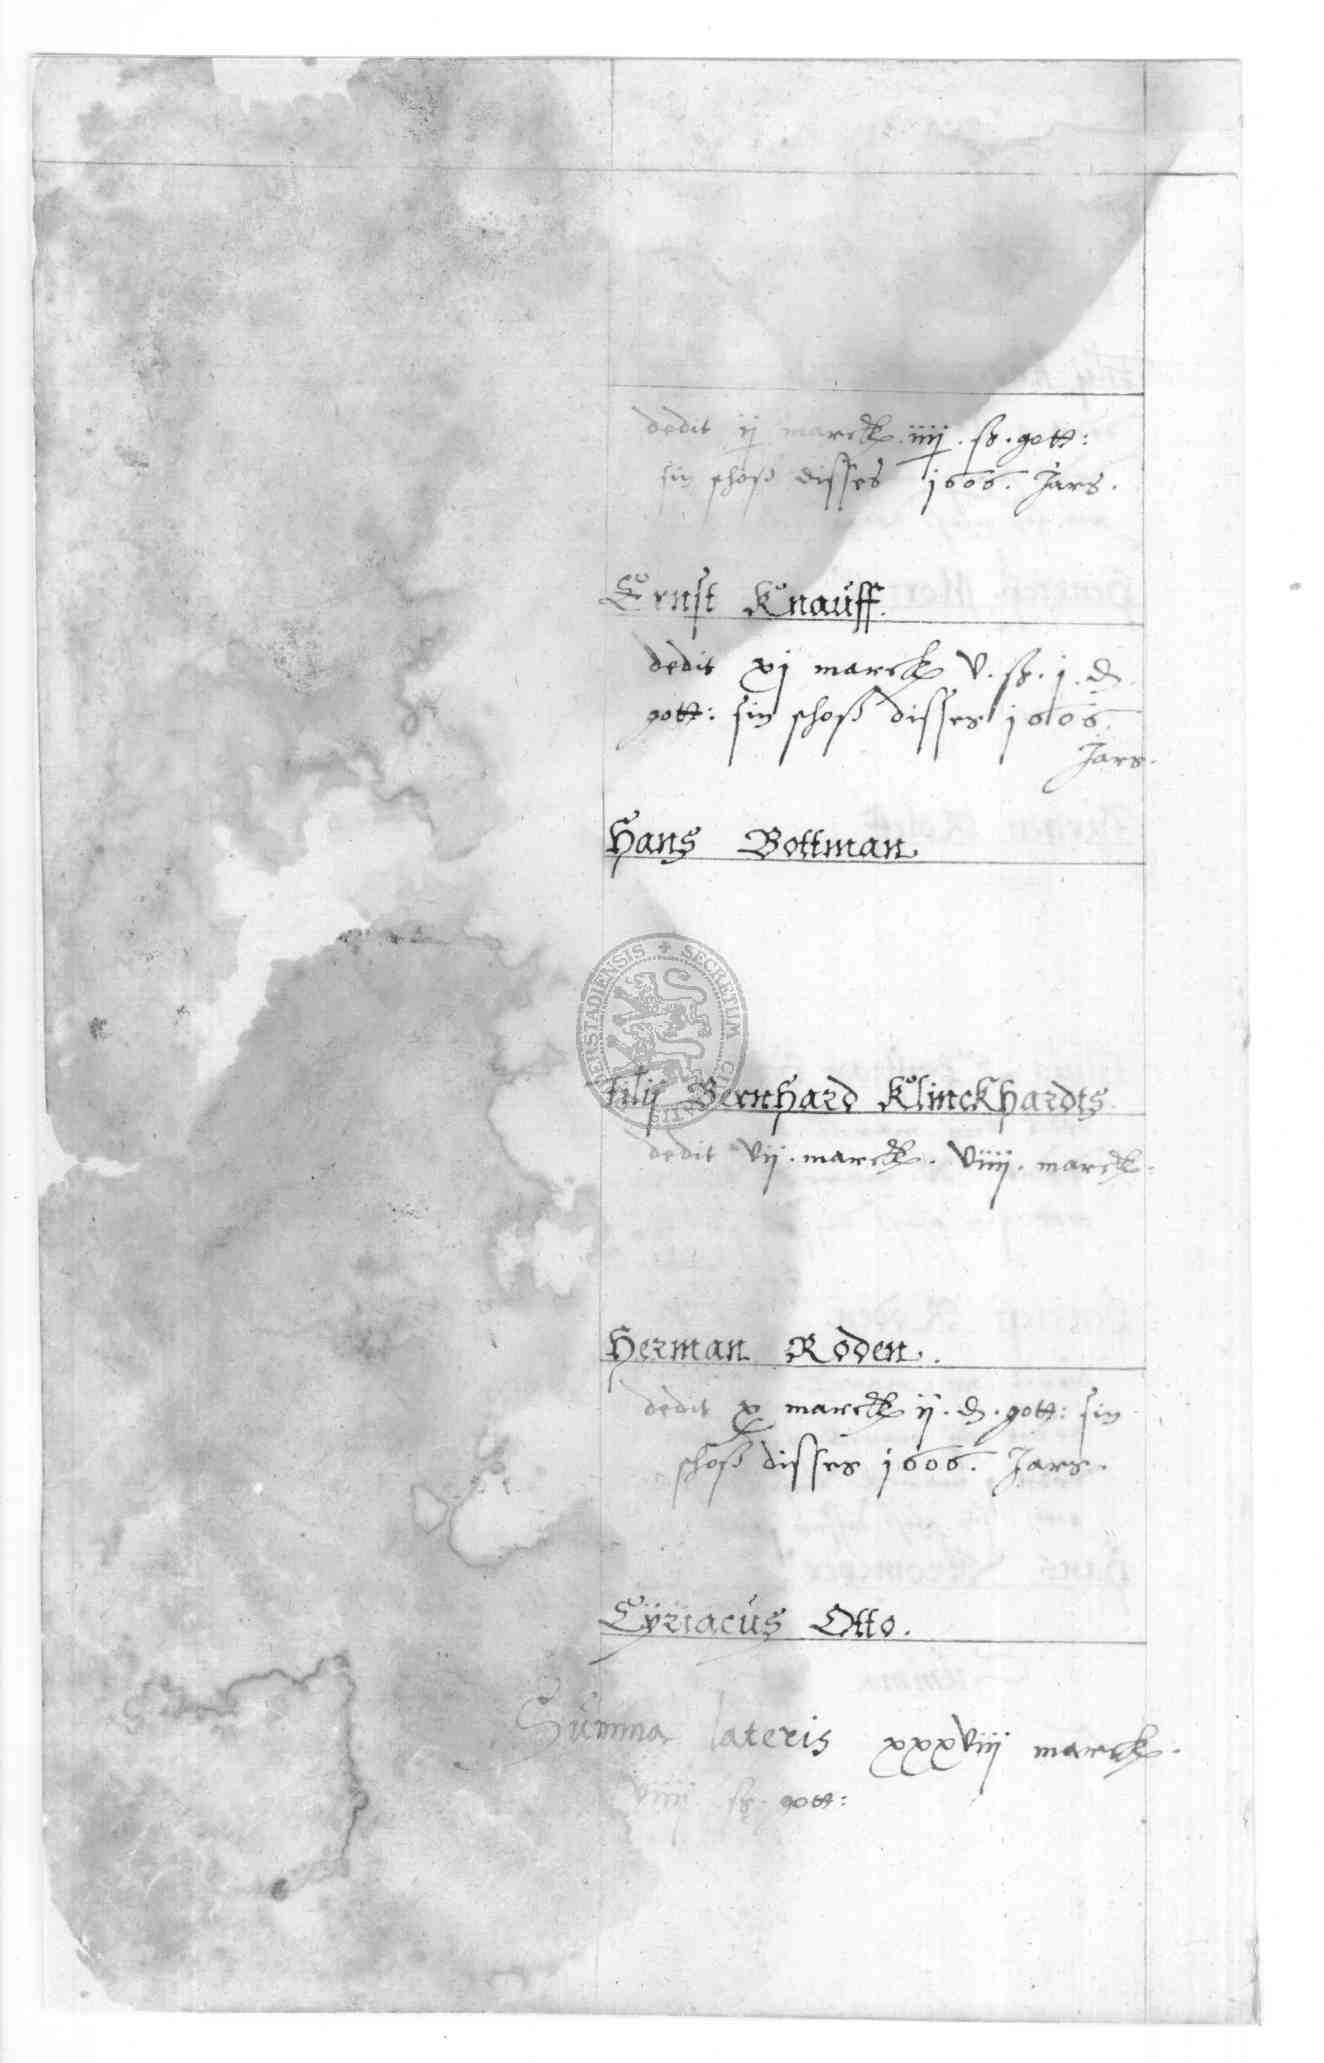 dedit ij marck. iiij. ß. gott:
sin schoß disses 1606. Jars.
Ernst Knauff.
dedit xj marck V. ß. j. d.
gott: sin schoß disses 1606.
Jars.
Hans Bottman.
SECRETUM
Filij Bernhard Klinckhardts
dedit Vij. marck. Viiij. marck.
Herman Roden.
dedit x marck ij. d. gott: sin
schoß disses 1606. Jars.
Cÿriacus Otto.
Summa lateris xxxViij marck.
Viiij ß. gott: